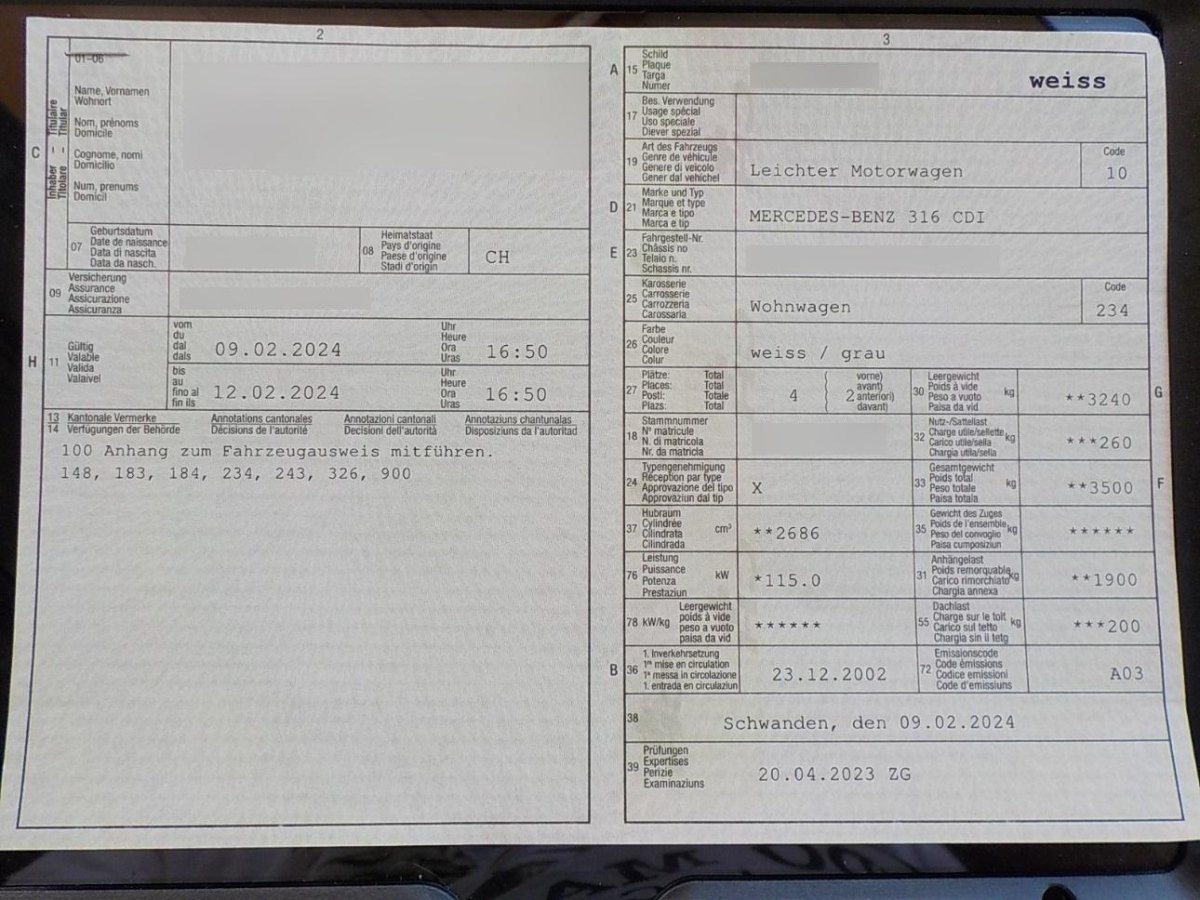 2
01-06
Inhaber - Titulaire
Titolare - Titular
C
Name, Vornamen
Wohnort
Nom, prénoms
Domicile
Cognome, nomi
Domicilio
Num, prenums
Domicil
07
Geburtsdatum
Date de naissance
Data di nascita
Data da nasch.
08
Heimatstaat
Pays d'origine
Paese d'origine
Stadi d'origin
CH
09
Versicherung
Assurance
Assicurazione
Assicuranza
H
11
Gültig
Valable
Valida
Valaivel
vom
du
dal
dals
09.02.2024
Uhr
Heure
Ora
Uras
16:50
bis
au
fino al
fin ils
12.02.2024
Uhr
Heure
Ora
Uras
16:50
13 Kantonale Vermerke Annotations cantonales Annotazioni cantonali Annotaziuns chantunalas
14 Verfügungen der Behörde Décisions de l'autorité Decisioni dell'autorità Disposiziuns da l'autoritad
100 Anhang zum Fahrzeugausweis mitführen.
148, 183, 184, 234, 243, 326, 900
3
A
15
Schild
Plaque
Targa
Numer
weiss
17
Bes. Verwendung
Usage spécial
Uso speciale
Diever spezial
19
Art des Fahrzeugs
Genre de véhicule
Genere di veicolo
Gener dal vehichel
Leichter Motorwagen
Code
10
D
21
Marke und Typ
Marque et type
Marca e tipo
Marca e tip
MERCEDES-BENZ 316 CDI
E
23
Fahrgestell-Nr.
Châssis no
Telaio n.
Schassis nr.
25
Karosserie
Carrosserie
Carrozzeria
Carossaria
Wohnwagen
Code
234
26
Farbe
Couleur
Colore
Colur
weiss / grau
27
Plätze: Total
Places: Total
Posti: Totale
Plazs: Total
4
( vorne)
avant)
2 anteriori)
( davant)
30
Leergewicht
Poids à vide
Peso a vuoto
Paisa da vid
kg
**3240
G
18
Stammnummer
N° matricule
N. di matricola
Nr. da matricla
32
Nutz-/Sattellast
Charge utile/sellette
Carico utile/sella
Chargia utila/sella
kg
***260
24
Typengenehmigung
Réception par type
Approvazione del tipo
Approvaziun dal tip
X
33
Gesamtgewicht
Poids total
Peso totale
Paisa totala
kg
**3500
F
37
Hubraum
Cylindrée
Cilindrata
Cilindrada
cm³
**2686
35
Gewicht des Zuges
Poids de l'ensemble
Peso del convoglio
Paisa cumposiziun
kg
******
76
Leistung
Puissance
Potenza
Prestaziun
kW
*115.0
31
Anhängelast
Poids remorquable
Carico rimorchiato
Chargia annexa
kg
**1900
78 kW/kg
Leergewicht
poids à vide
peso a vuoto
paisa da vid
******
55
Dachlast
Charge sur le toit
Carico sul tetto
Chargia sin il tetg
kg
***200
B
36
1. Inverkehrsetzung
1re mise en circulation
1a messa in circolazione
1. entrada en circulaziun
23.12.2002
72
Emissionscode
Code émissions
Codice emissioni
Code d'emissiuns
A03
38
Schwanden, den 09.02.2024
39
Prüfungen
Expertises
Perizie
Examinaziuns
20.04.2023 ZG